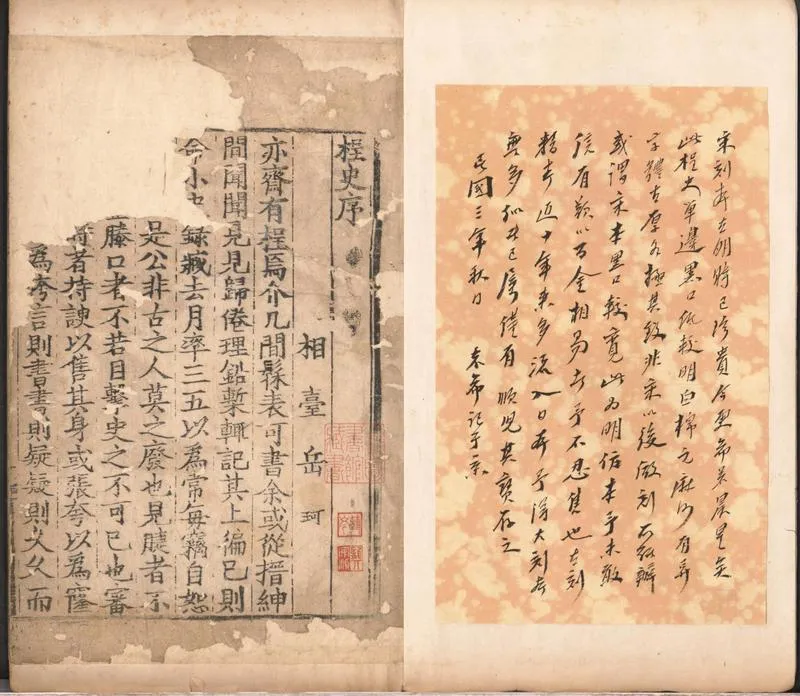 宋刻本在明時已珍貴今更希若晨星矣
此桯史單邊黑口紙較明白棉之麻沙有異
字體古厚各極其致非宋以後倣刻所能辦
或謂宋本黑口較寬此為明仿本予未敢
信有以百金相易者予不忍售也古刻
本近十年来多流入日本予得大刻本
無多似此已屬僅有願兒其寶存之
民國三年秋日 袁希記于京
桯史序
相臺岳珂
亦齋有桯焉介几間髹表可書余或從搢紳
間聞聞見見歸倦理鉛槧輒記其上徧已則
命小史錄藏去月率三五以為常每竊自恕
是公非古之人莫之廢也見睫者不
滕口者不若目擊史之不可已也審
者持諛以售其身或張夸以為窿
為夸言則書書則疑疑則久久而